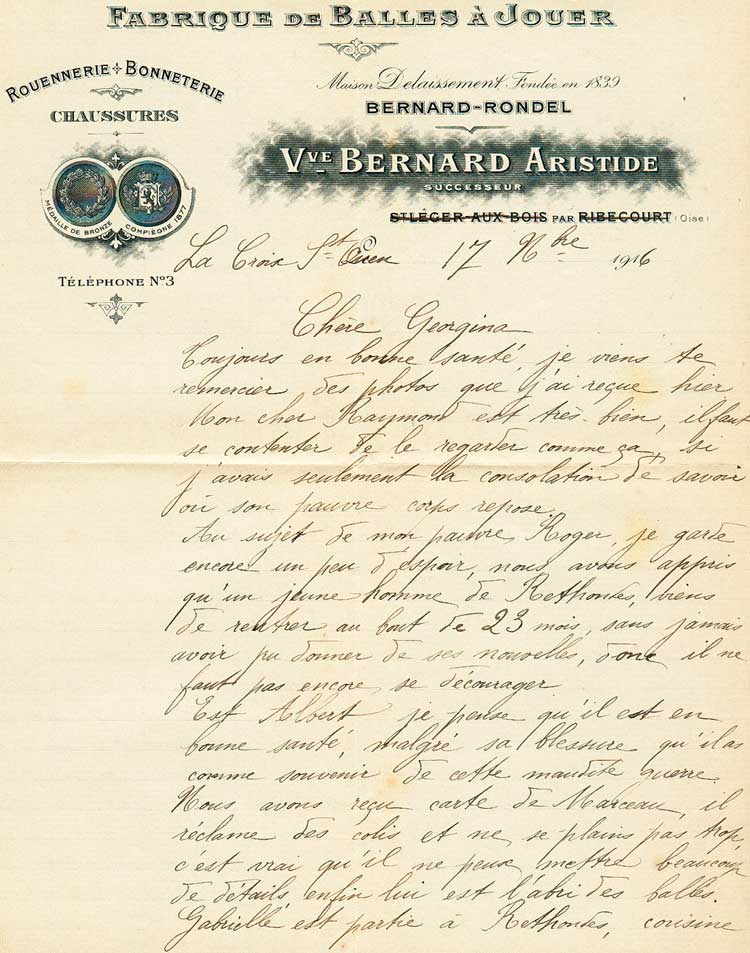 FABRIQUE DE BALLES À JOUER
ROUENNERIE + BONNETERIE
CHAUSSURES
Maison Delaissement Fondée en 1839
BERNARD-RONDEL
VVE BERNARD ARISTIDE
SUCCESSEUR
ST LÉGER-AUX BOIS PAR RIBECOURT (Oise)
MÉDAILLE DE BRONZE COMPIÈGNE 1877
TÉLÉPHONE No 3
La Croix St Ouen 17 Nbre 1916
Chère Georgina
Toujours en bonne santé, je viens te
remercier des photos que j'ai reçue hier
Mon cher Raymond est très-bien, il faut
se contenter de le regarder comme ça, si
j'avais seulement la consolation de savoir
où son pauvre corps repose.
Au sujet de mon pauvre Roger, je garde
encore un peu d'espoir, nous avons appris
qu'un jeune homme de Rethondes, viens
de rentrer au bout de 23 mois, sans jamais
avoir pu donner de ses nouvelles, donc il ne
faut pas encore se décourager.
Est Albert je pense qu'il est en
bonne santé, malgré sa blessure qu'il as
comme souvenir de cette maudite guerre.
Nous avons reçu carte de Marceau, il
réclame des colis et ne se plains pas trop,
c'est vrai qu'il ne peux mettre beaucoup
de détails, enfin lui est l'abri des balles.
Gabrielle est partie à Rethondes, cousine